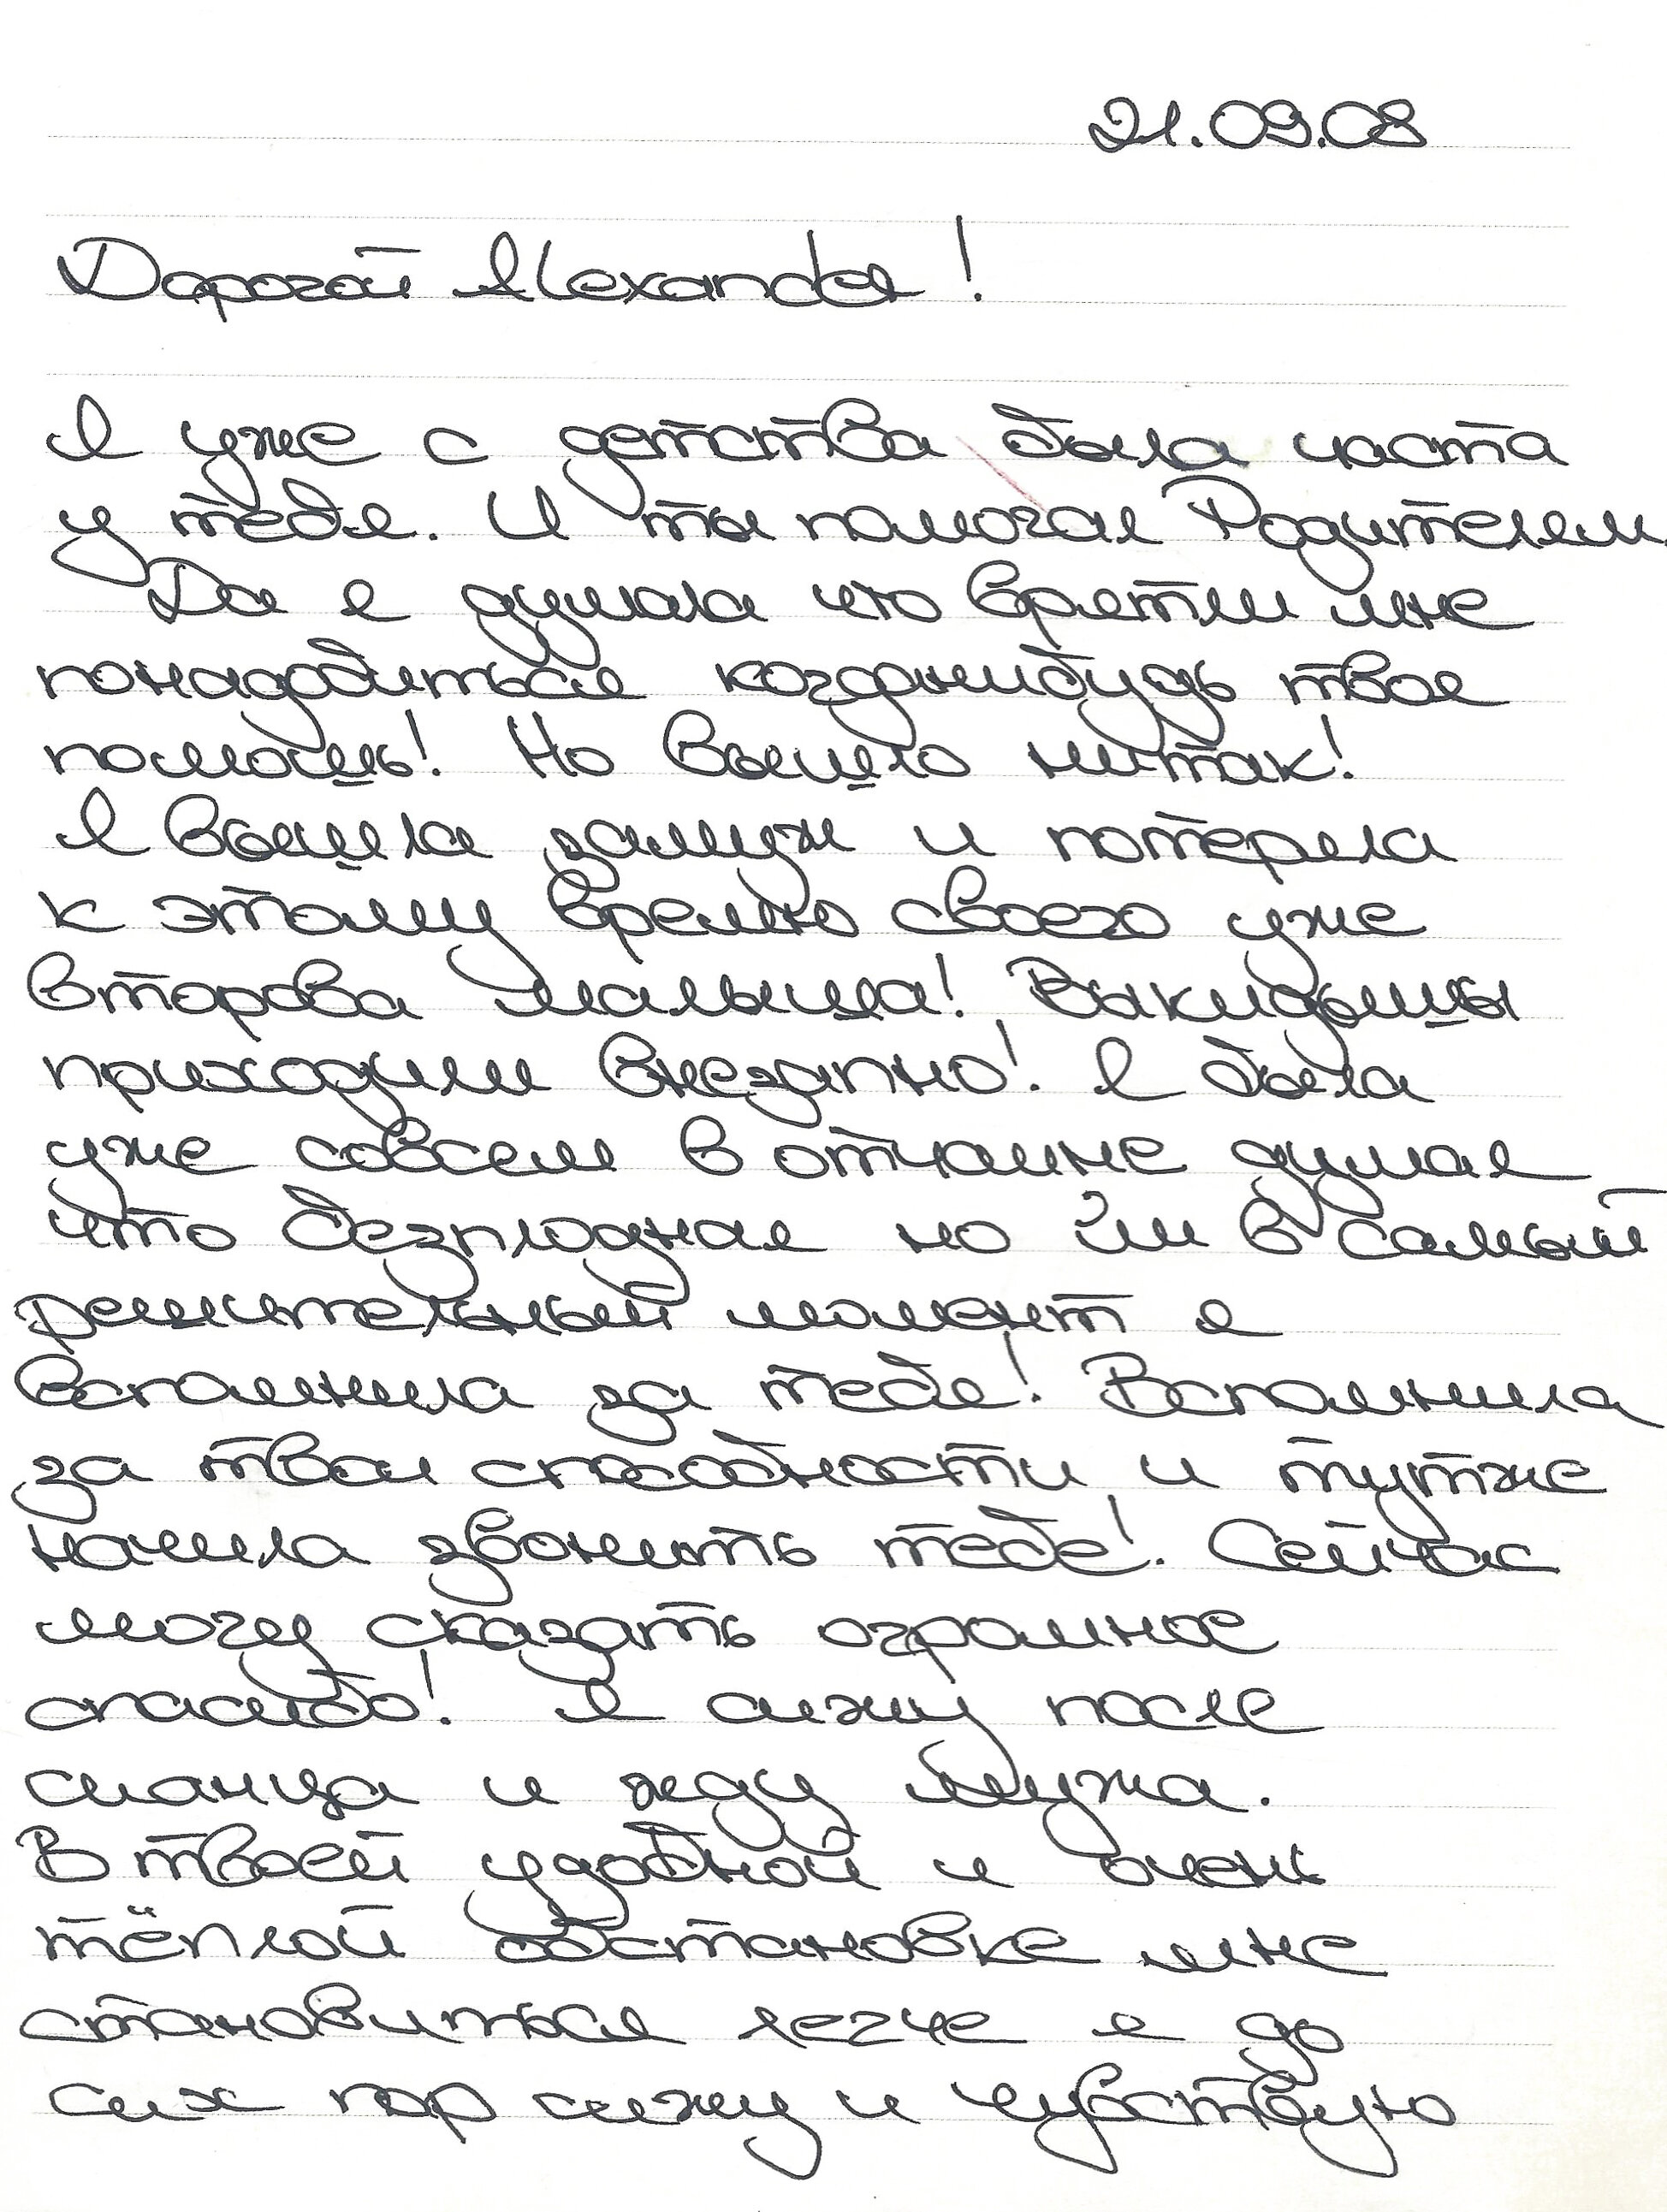 21.09.08
Дорогой Alexander!
Я уже с детства была часта
у тебя. И ты помогал Родителям.
Да я думала что врятли мне
понадобиться когданибудь твоя
помошь! Но вышло нитак!
Я вышла замуж и потеряла
к этому время своего уже
второва малыша! Выкидышы
приходили внезапно! Я была
уже совсем в отчаине думая
что безплодная но йи в самый
решительный момент я
вспомнила за тебя! Вспомнила
за твои способности и тутже
начила звонить тебе! Сейчас
могу сказать огромное
спасибо! Я сижу после
сианца и жду мужа.
В твоей удобной и очень
тёплой обстановке мне
становиться легче я до
сих пор сижу и чувствую